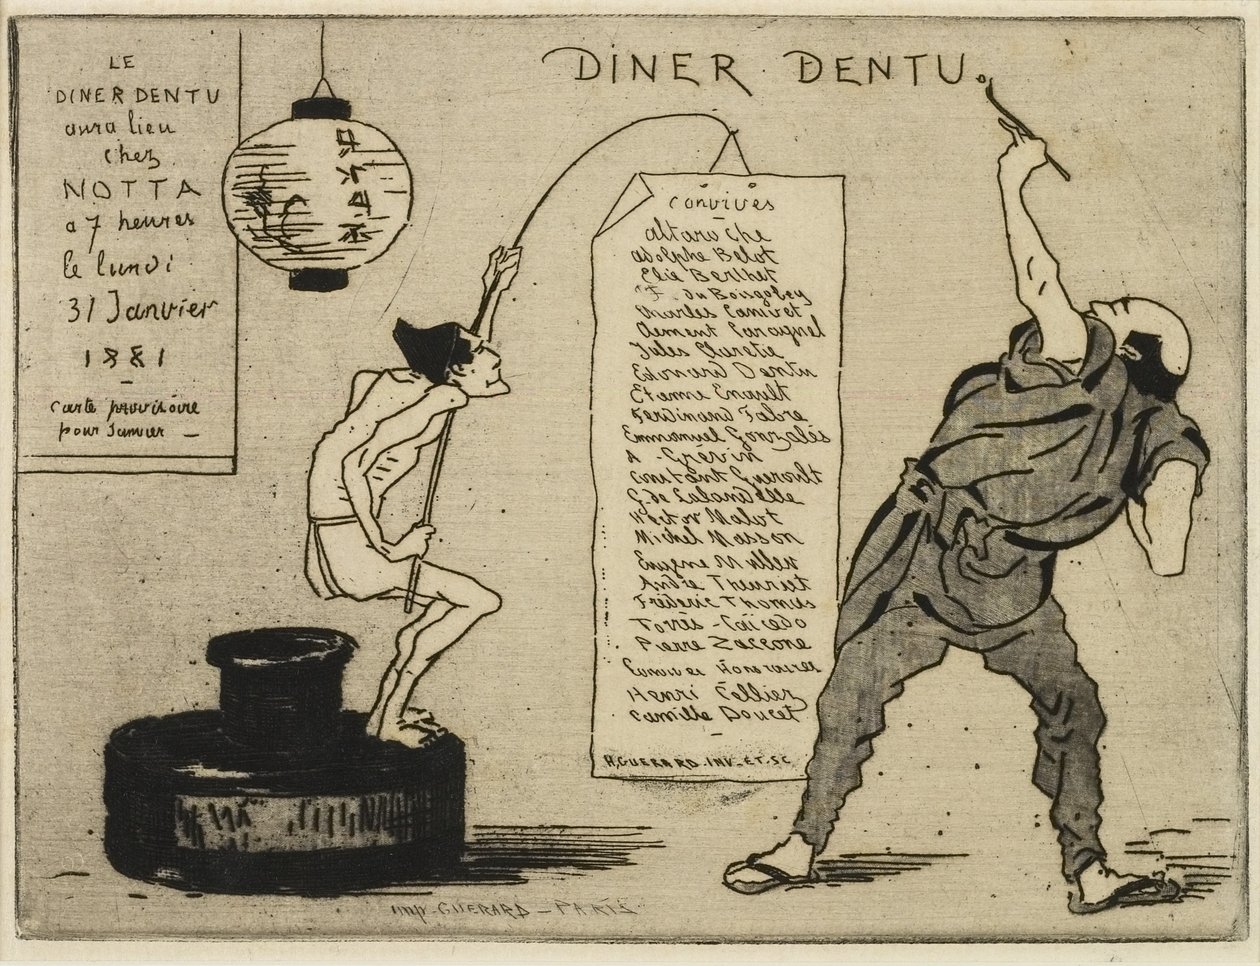 LE
DINER DENTU
aura lieu
chez
NOTTA
a 7 heures
le lundi
31 Janvier
1881
carte provisoire
pour Janvier
DINER DENTU.
convives
Altaroche
Adolphe Belot
Elie Berthet
F. du Boisgobey
Charles Canivet
Clement Caraguel
Jules Claretie
Edouard Dentu
Etienne Enault
Ferdinand Fabre
Emmanuel Gonzalès
A. Grévin
Constant Gueroult
G de Lalandelle
Hector Malot
Michel Masson
Eugène Muller
André Theuriet
Fréderic Thomas
Torrès-Caïcedo
Pierre Zaccone
Convives Honoraires
Henri Cellier
Camille Doucet
H. GUERARD. INV. ET. SC
Imp. GUERARD - PARIS